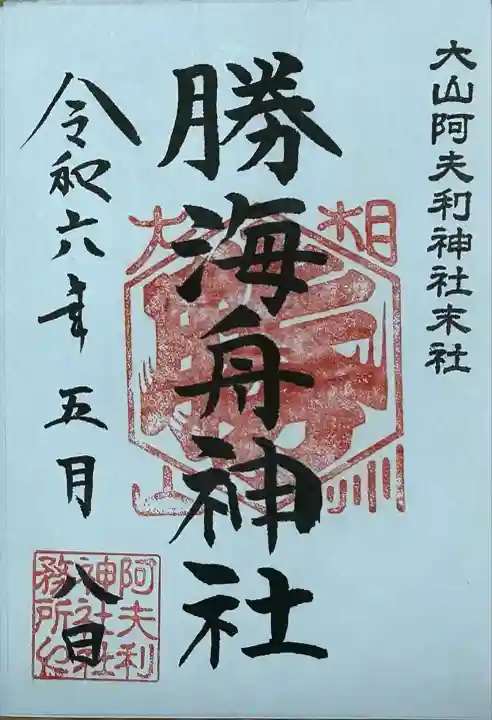 大山阿夫利神社末社
勝海舟神社
相州
大山
令和六年五月
八日
阿夫利
神社社
務所印